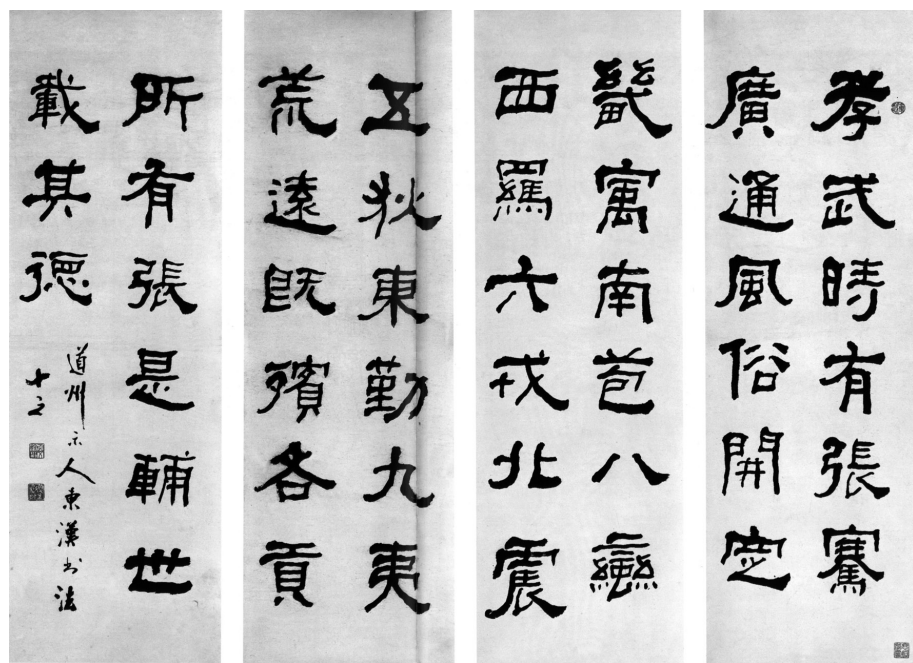 孝武時有張騫
廣通風俗開定
畿寓南苞八蠻
西羈六戎北震
五狄東勤九夷
荒遠既殯各貢
所有張是輔世
載其德
道州示人東漢書法